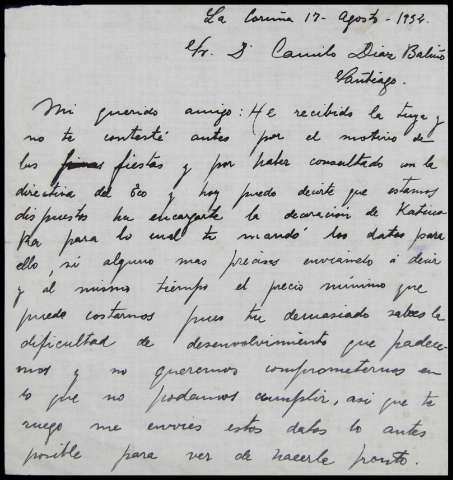 La Coruña 17- Agosto - 1934.
Sr. D. Camilo Diaz Baliño
Santiago.
Mi querido amigo: He recibido la tuya y
no te contesté antes por el motivo de
las fiestas y por haber consultado con la
directiva del Eco y hoy puedo decirte que estamos
dispuestos ha encargarte la decoración de Katius
ka para lo cual te mandó los datos para
ello, si alguno mas precisas envianelo á decir
y al mismo tiempo el precio mínimo que
puede costarnos pues tu demasiado sabes la
dificultad de desenvolvimiento que padece-
mos y no queremos comprometernos en
lo que no podamos cumplir, asi que te
ruego me envies estos datos lo antes
posible para ver de hacerle pronto.